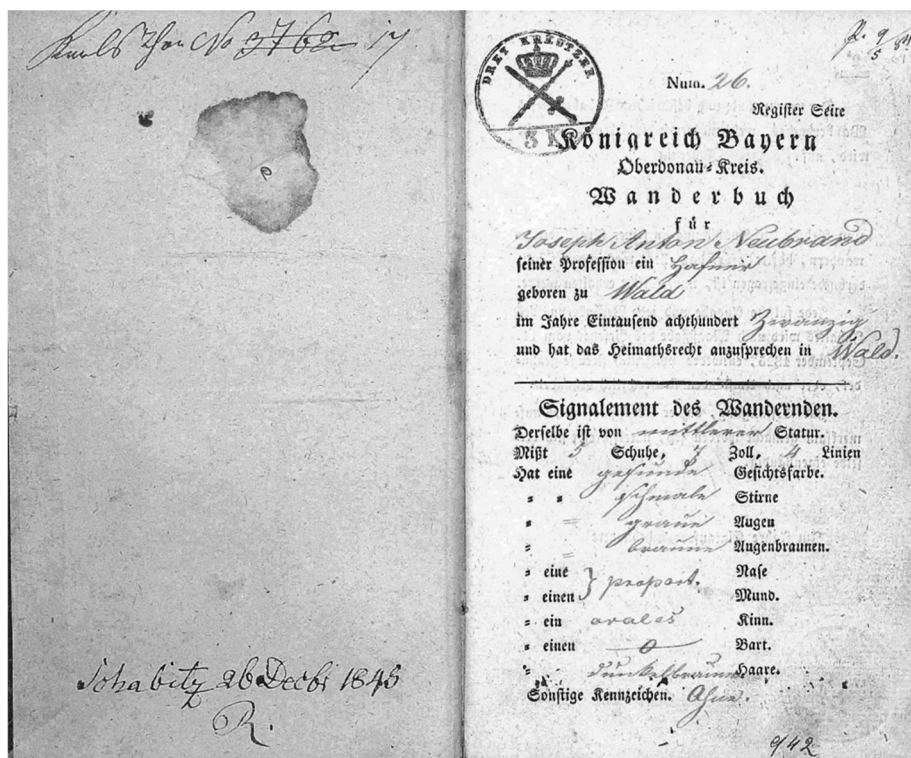 No 3762 17
Schabitz 26 Decbr 1845
R.
DREY KREUTZER
3 K
Num. 26.
Regiſter Seite
Königreich Bayern
Oberdonau-Kreis.
Wanderbuch
für
Joseph Anton Neubrand
ſeiner Profeſſion ein Hafner
geboren zu Wald
im Jahre Eintauſend achthundert Zwanzig
und hat das Heimathsrecht anzuſprechen in Wald.
Signalement des Wandernden.
Derſelbe iſt von mittlerer Statur.
Mißt 5 Schuhe, 7 Zoll, 4 Linien
Hat eine gesunde Geſichtsfarbe.
" " schmale Stirne
" " graue Augen
" " braune Augenbraunen.
" eine } proport. Naſe
" einen Mund.
" ein ovales Kinn.
" einen 0 Bart.
" dunkelbraune Haare.
Sonſtige Kennzeichen. Ohne.
942